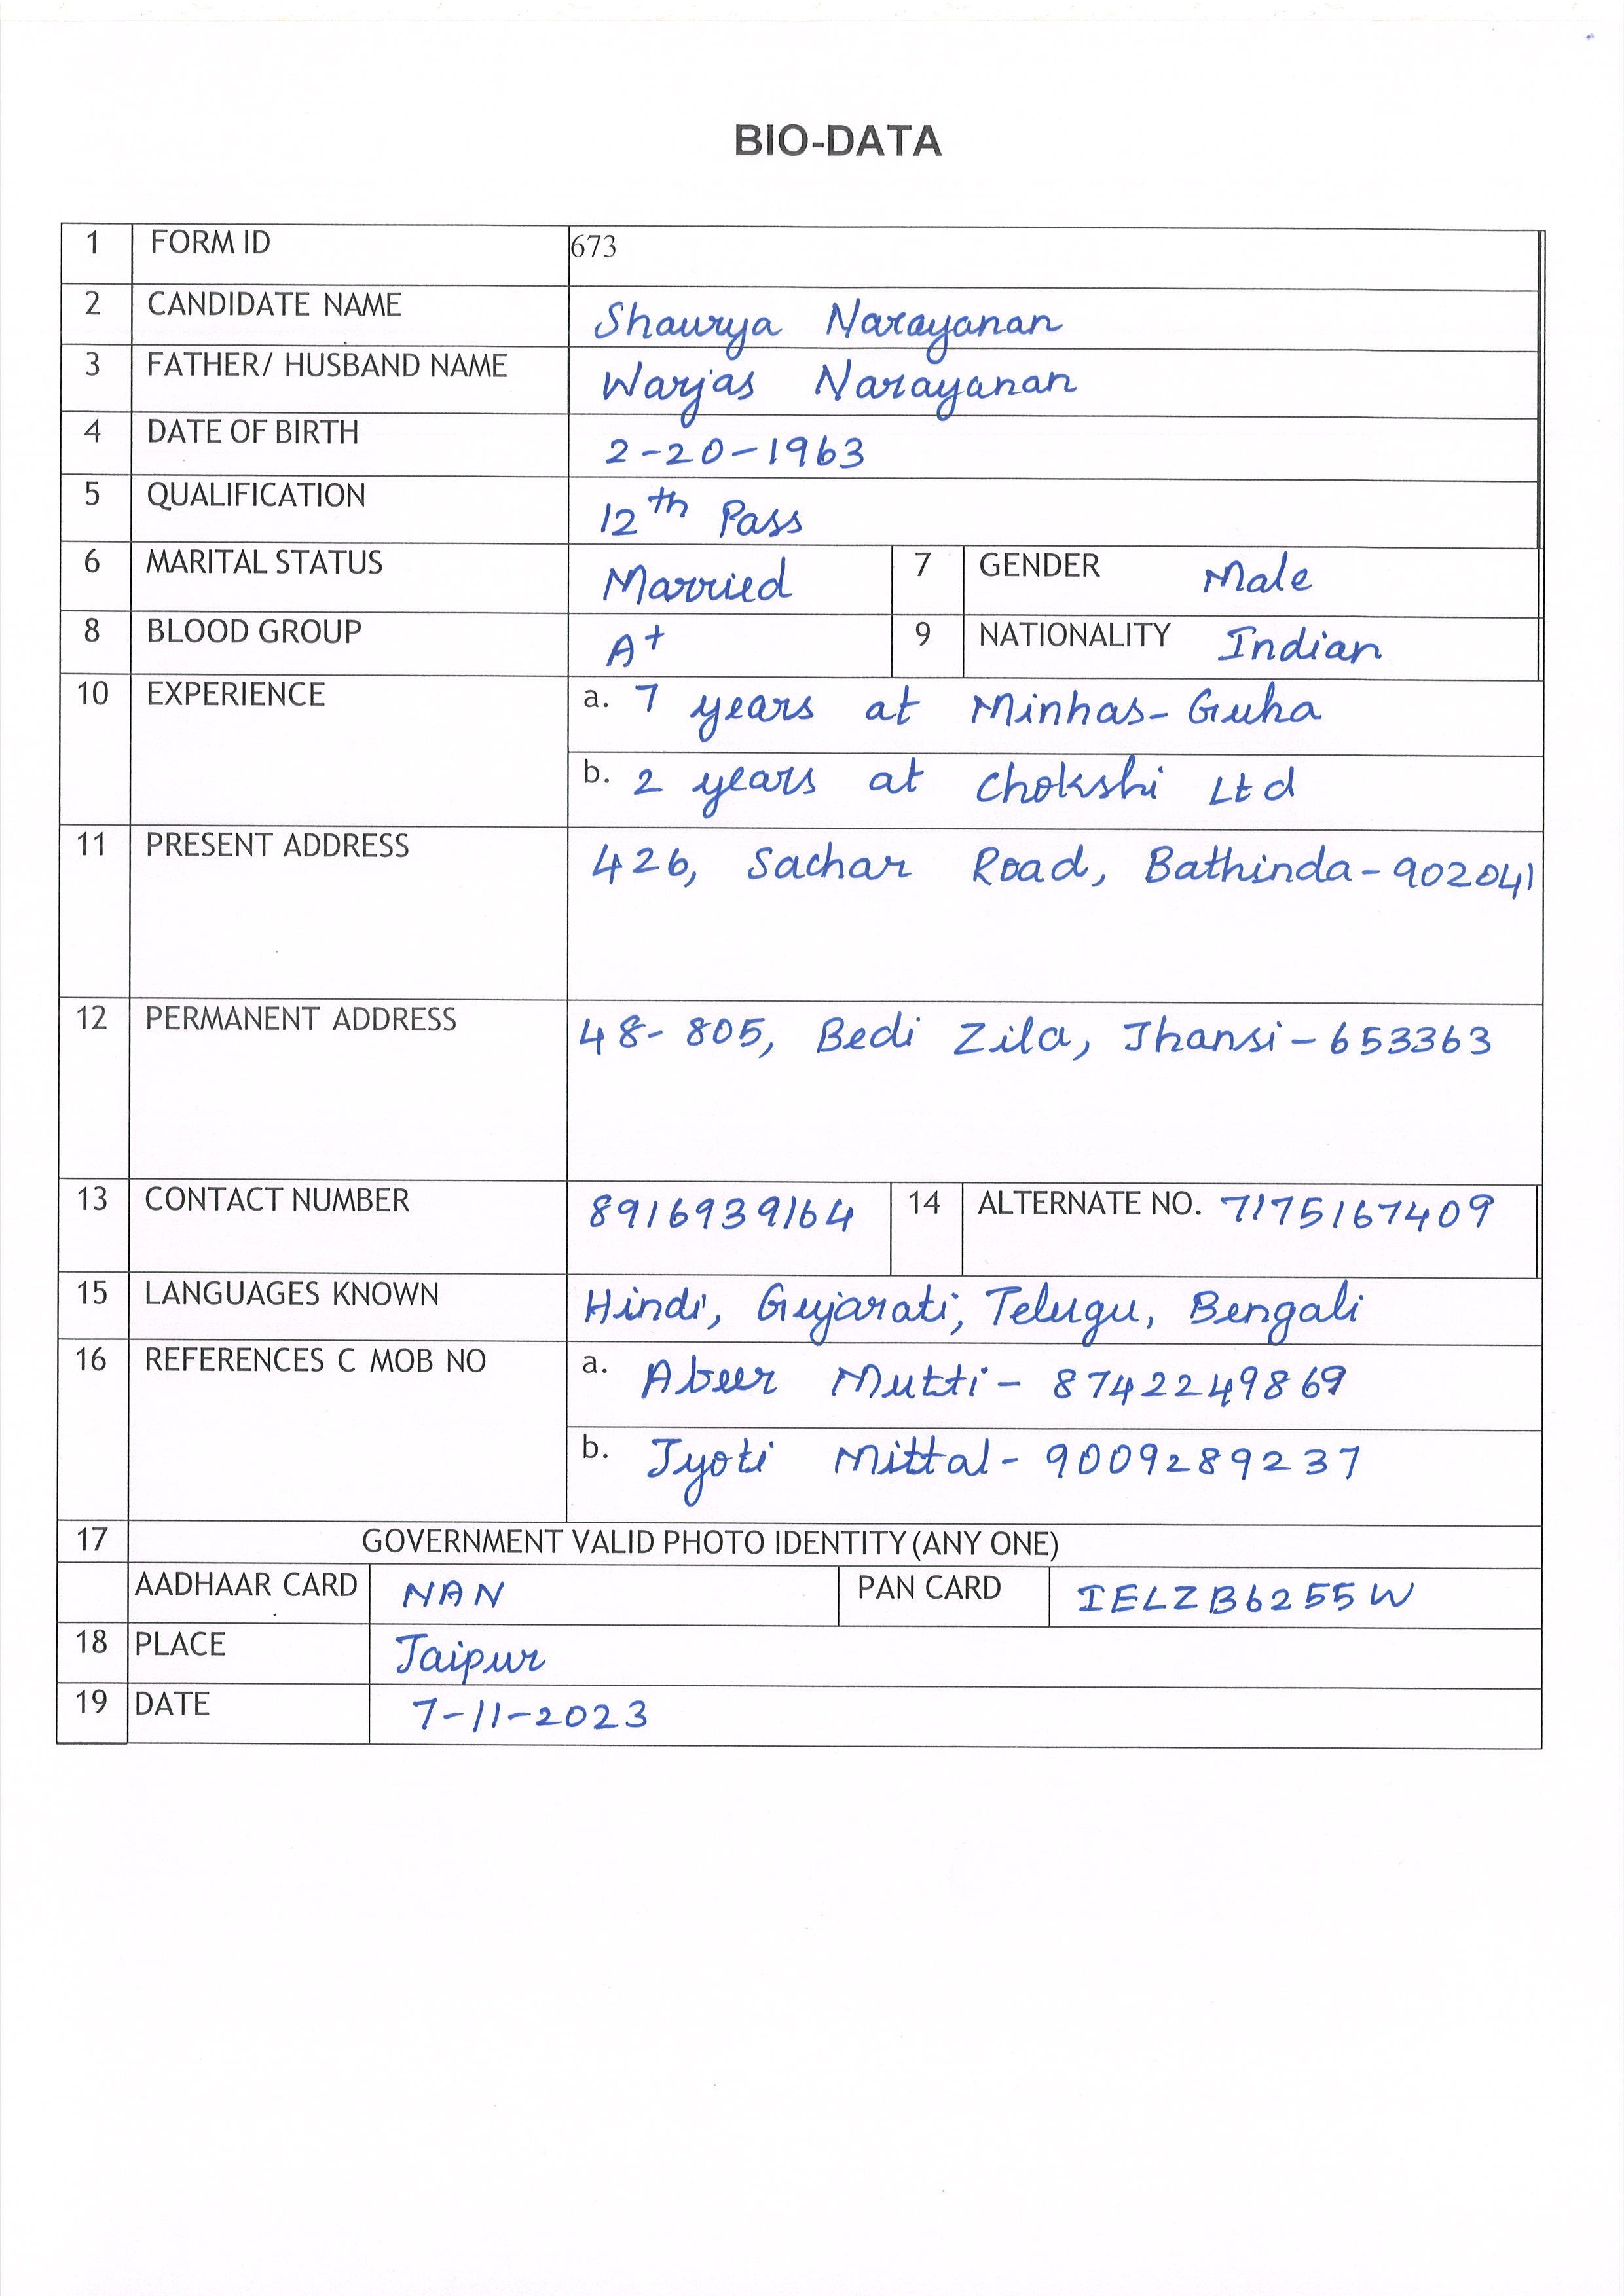 BIO-DATA
1 FORM ID 673
2 CANDIDATE NAME Shaurya Narayanan
3 FATHER/ HUSBAND NAME Warjas Narayanan
4 DATE OF BIRTH 2-20-1963
5 QUALIFICATION 12th Pass
6 MARITAL STATUS Married 7 GENDER Male
8 BLOOD GROUP A+ 9 NATIONALITY Indian
10 EXPERIENCE a. 7 years at Minhas-Guha
b. 2 years at Chokshi Ltd
11 PRESENT ADDRESS 426, Sachar Road, Bathinda-902041
12 PERMANENT ADDRESS 48-805, Bedi Zila, Jhansi-653363
13 CONTACT NUMBER 8916939164 14 ALTERNATE NO. 7175167409
15 LANGUAGES KNOWN Hindi, Gujarati, Telugu, Bengali
16 REFERENCES C MOB NO a. Abeer Mutti- 8742249869
b. Jyoti Mittal- 9009289237
17 GOVERNMENT VALID PHOTO IDENTITY (ANY ONE)
AADHAAR CARD NAN PAN CARD IELZB6255W
18 PLACE Jaipur
19 DATE 7-11-2023